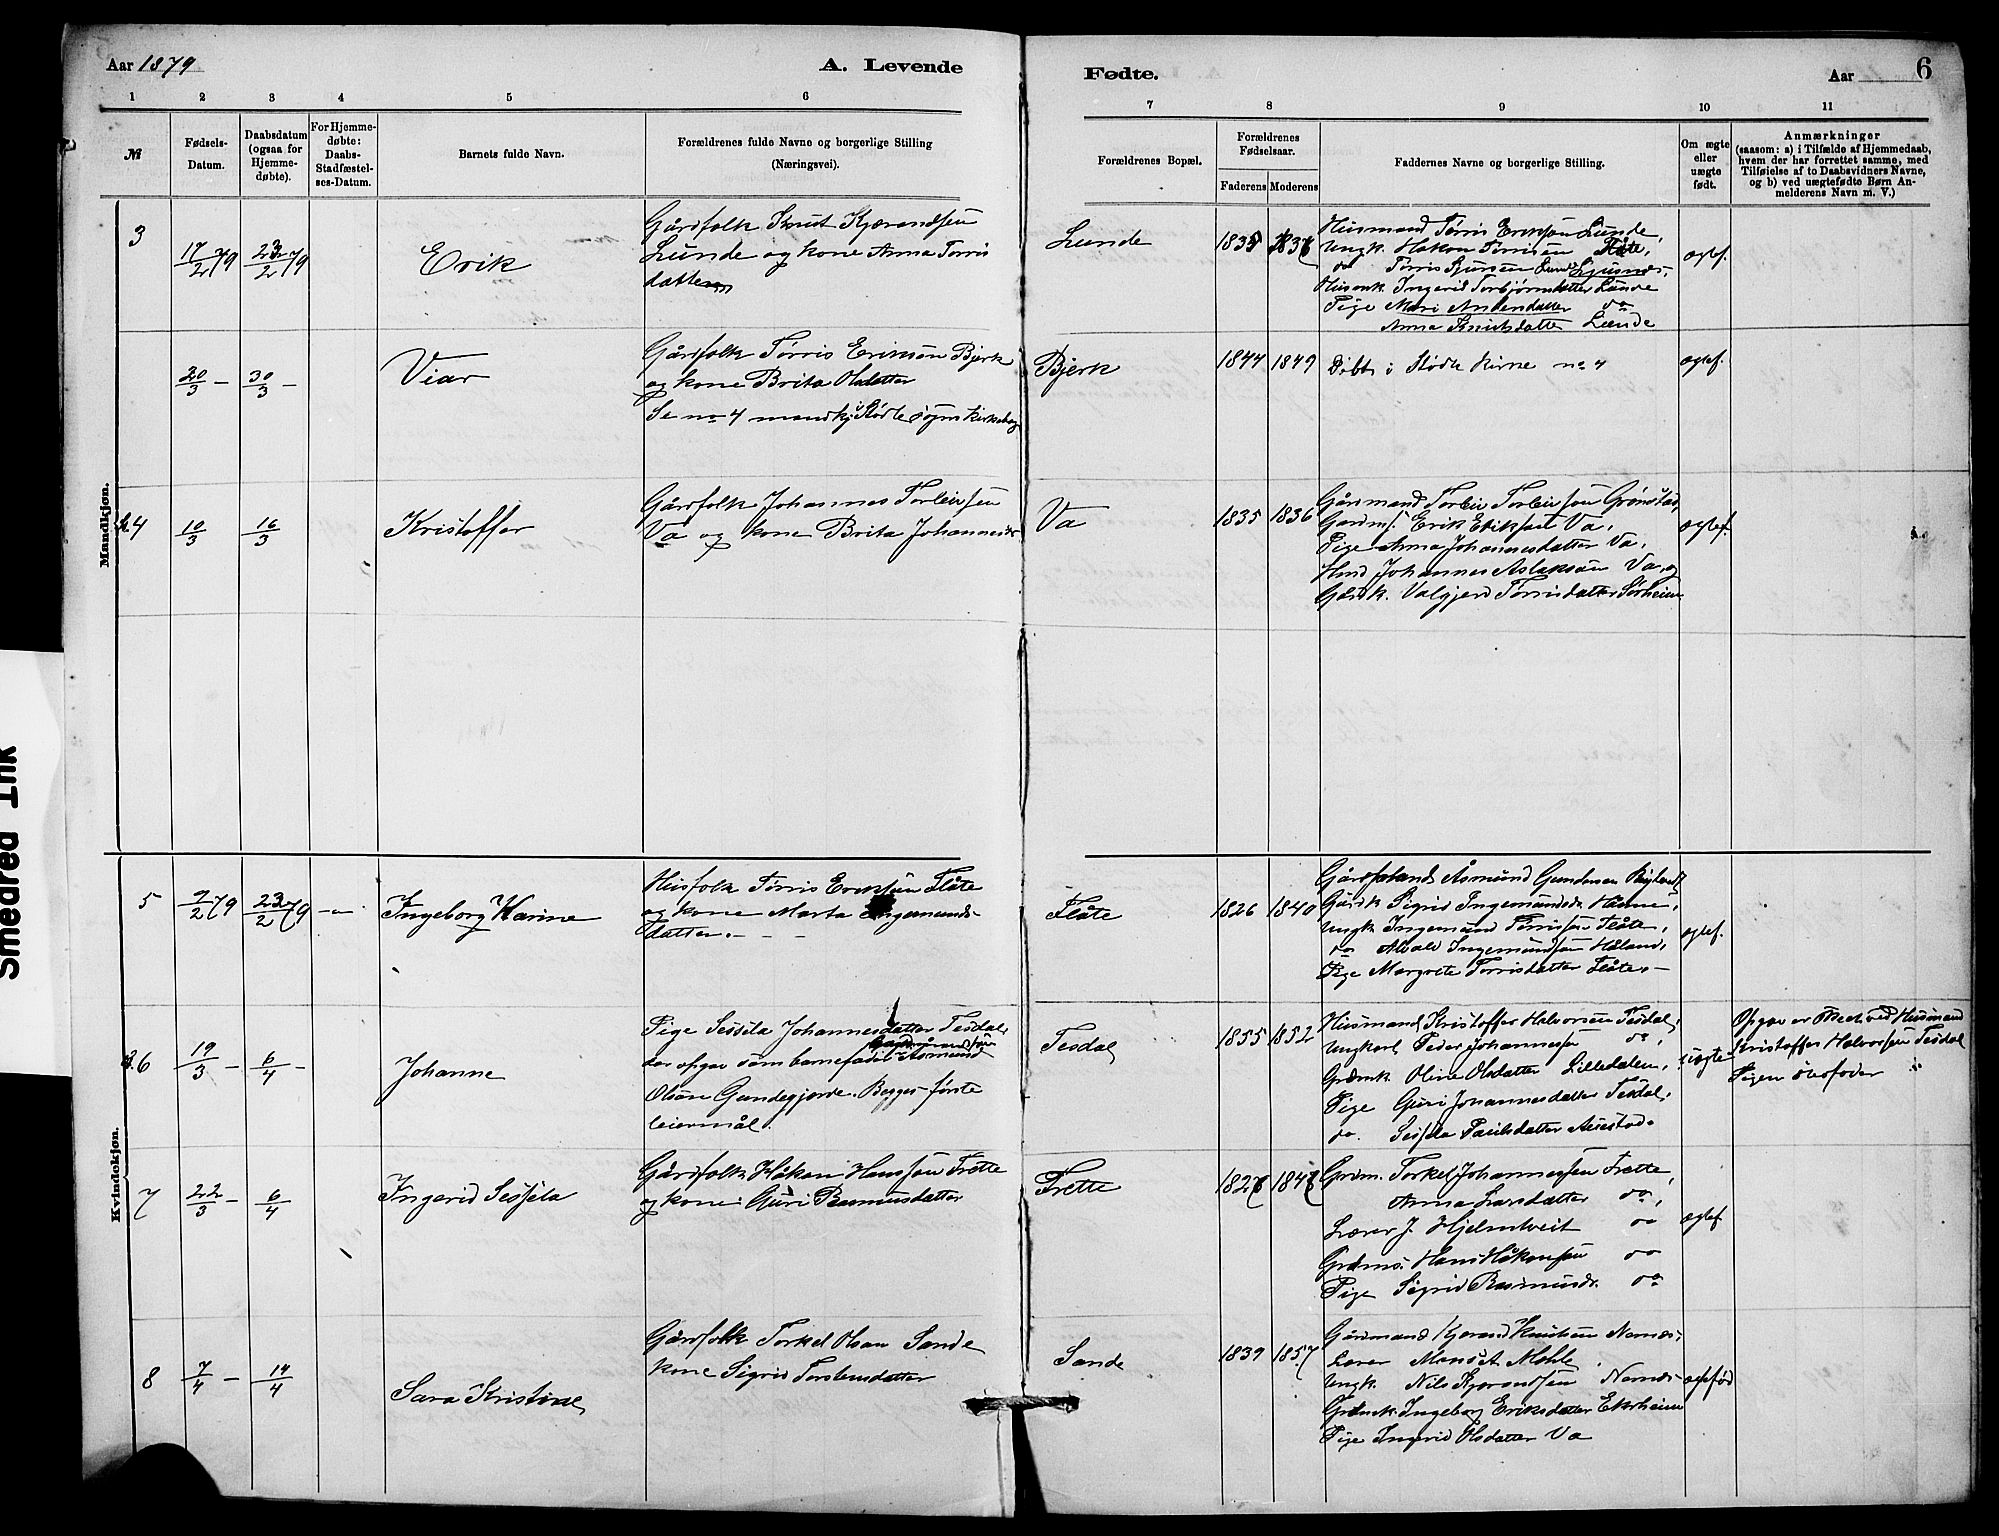 Aar 1879
A. Levende
Fødte.
Aar
6
1 2 3 4 5 6 7 8 9 10 11
№
Fødsels-
Datum.
Daabsdatum
(ogsaa for
Hjemme-
døbte).
For Hjemme-
døbte:
Daabs-
Stadfæstel-
ses-Datum.
Barnets fulde Navn.
Forældrenes fulde Navne og borgerlige Stilling
(Næringsvei).
Forældrenes Bopæl.
Forældrenes
Fødselsaar.
Faderens Moderens
Faddernes Navne og borgerlige Stilling.
Om ægte
eller
uægte
født.
Anmærkninger
(saasom: a) i Tilfælde af Hjemmedaab,
hvem der har forrettet samme, med
Tilføielse af to Daabsvidners Navne,
og b) ved uægtefødte Børn An-
melderens Navn m. V.)
Mandkjøn.
3
17/2 79
23/2 79
Erik
Gårdfolk Knut Kjærandsen
Lunde og kone Anna Torris
datter
Lunde
1835 1837
Husmand Tørris Eriksen Lunde,
Ungk. Håkon Tørrisen Flåte,
do Tørris Sjursen
Husmk. Ingerid Torbjørnsdatter Lunde
Pige Mari Andersdatter do
Anna Knutsdatter Lunde
ægtef.
20/3 -
30/3 -
Viar
Gårdfolk Tørris Eriksøn Bjerk
og kone Brita Olsdatter
Se no 4 mandkj. i Stødle sogns kirkebog
Bjerk
1844 1849
Døbt i Stødle Kirke no 4
ægtef.
4
10/3
16/3
Kristoffer
Gårdfolk Johannes Torleivsen
Va og kone Brita Johannesdr
Va
1835 1836
Gårdmand Torleiv Torleivsøn Grønstad,
Gardms. Erik Eriksøn Va,
Pige Anna Johannesdatter Va,
Hmd Johannes Aslaksøn Va, og
Gårdk. Valgjerd Tørrisdatter Sørheim
ægtef.
Kvindekjøn.
5
9/2 79
23/2 79
Ingeborg Karine
Husfolk Tørris Eriksøn Flåte
og kone Marta Ingemunds-
datter.
Flåte
1826 1840
Gårdmand Asmund Gundersen
Gårdk. Sigrid Ingemundsdr.
Ungk. Ingemund Tørrisøn Flåte,
do Ingemundsøn Håland,
Pige Margrete Tørrisdatter Flåte.
ægtef.
6
19/3 -
6/4 -
Johanne
Pige Sessela Johannesdatter Tesdal,
der opgav som barnefader Asmund
Olsøn Gundegjerde. Begges første
leiermål.
Tesdal
1855 1852
Husmand Kristoffer Halvorsen Tesdal,
Ungkarl Peder Johannesen do,
Grdmk. Oline Olsdatter Lilledalen,
Pige Guri Johannesdatter Tesdal,
do. Sessela Paulsdatter Auestad.
uægte
Opgav er skeet ved Husmand
Kristoffer Halvorsen Tesdal
Pigen stefader
7
22/3 -
6/4
Ingerid Sessela
Gårdfolk Håkon Hanssøn Frette
og kone Guri Rasmusdatter
Frette
1826 1848
Grdm. Torkel Johannessøn Frette,
Anna Larsdatter do,
Lærer J. Hjelmtveit do
Grdms. Hans Håkonsen do
Pige Sigrid Rasmusdr. do
ægtef
8
7/4 -
14/4
Sara Kristine
Gårdfolk Torkel Olsøn Sande
kone Sigrid Torstensdatter
Sande
1839 1857
Gårdmand Kjerand Knutsen Nernæs
Lærer Mons A. Mehle,
Ungk. Nils Kjerandsen Nernæs
Grdmk. Ingeborg Eriksdatter Ekrheim
Pige Ingerid Olsdatter Va
ægtefød
Smedred Ink